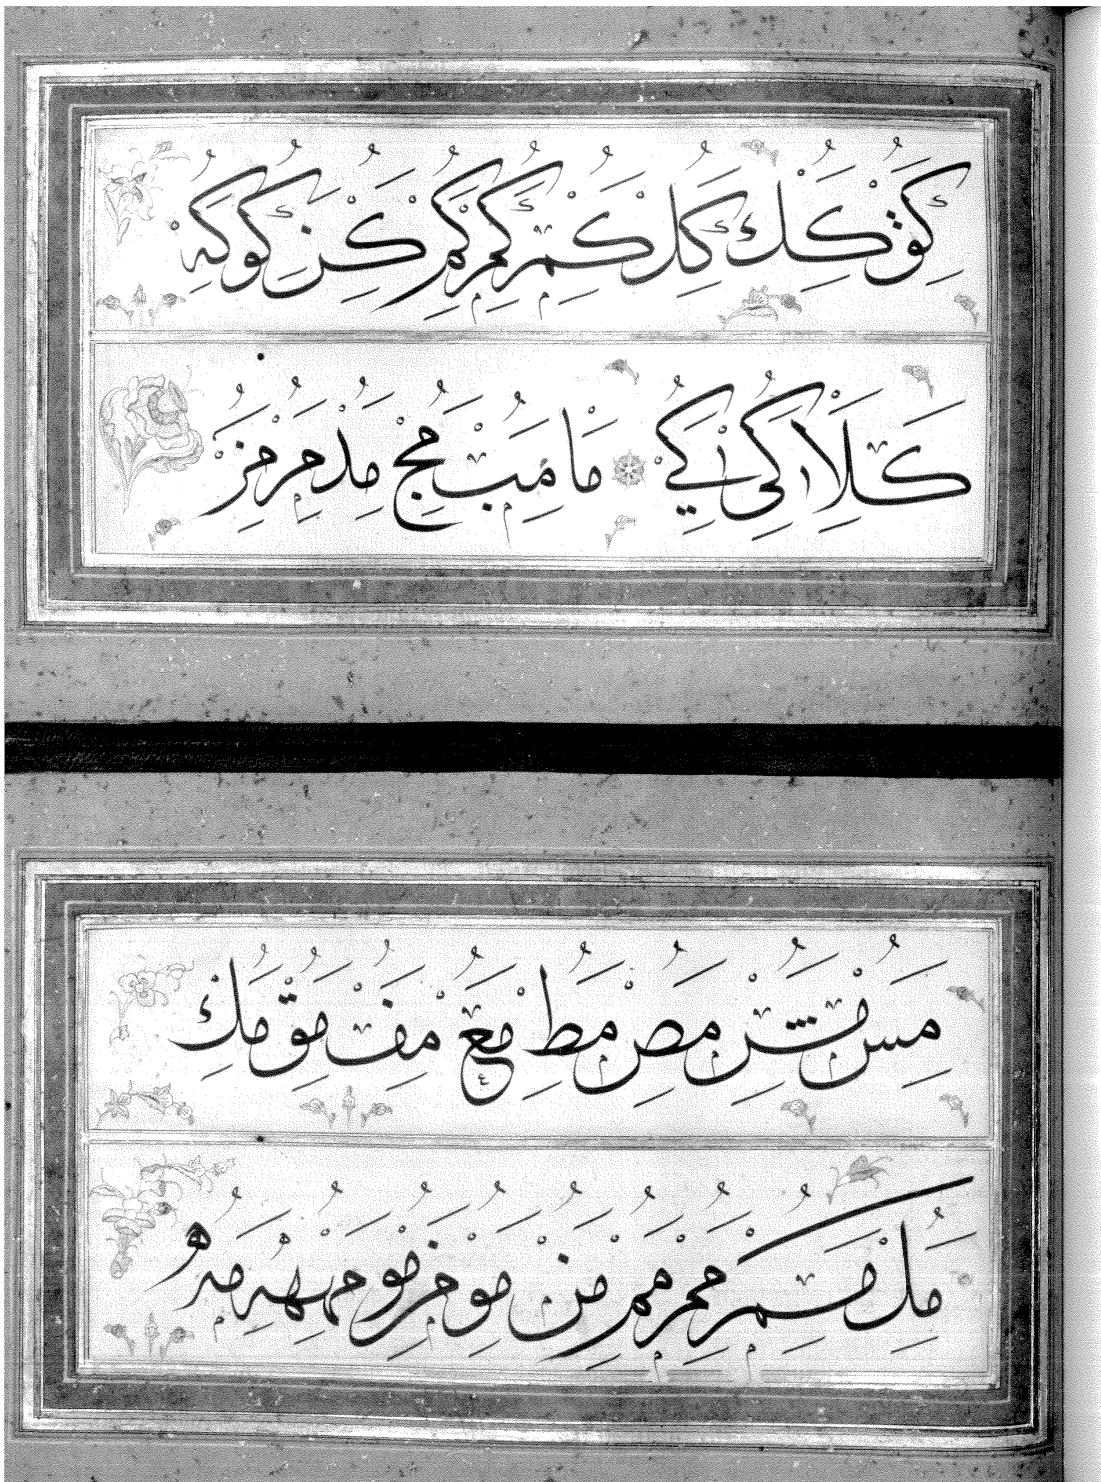 كق كك كل كم كم كم كن كو كه
كلا كى كي ما مب مج مد مر مر
مس مس مص مط مع مف مق مك
مل مم مم مم من مو من مو مه مه